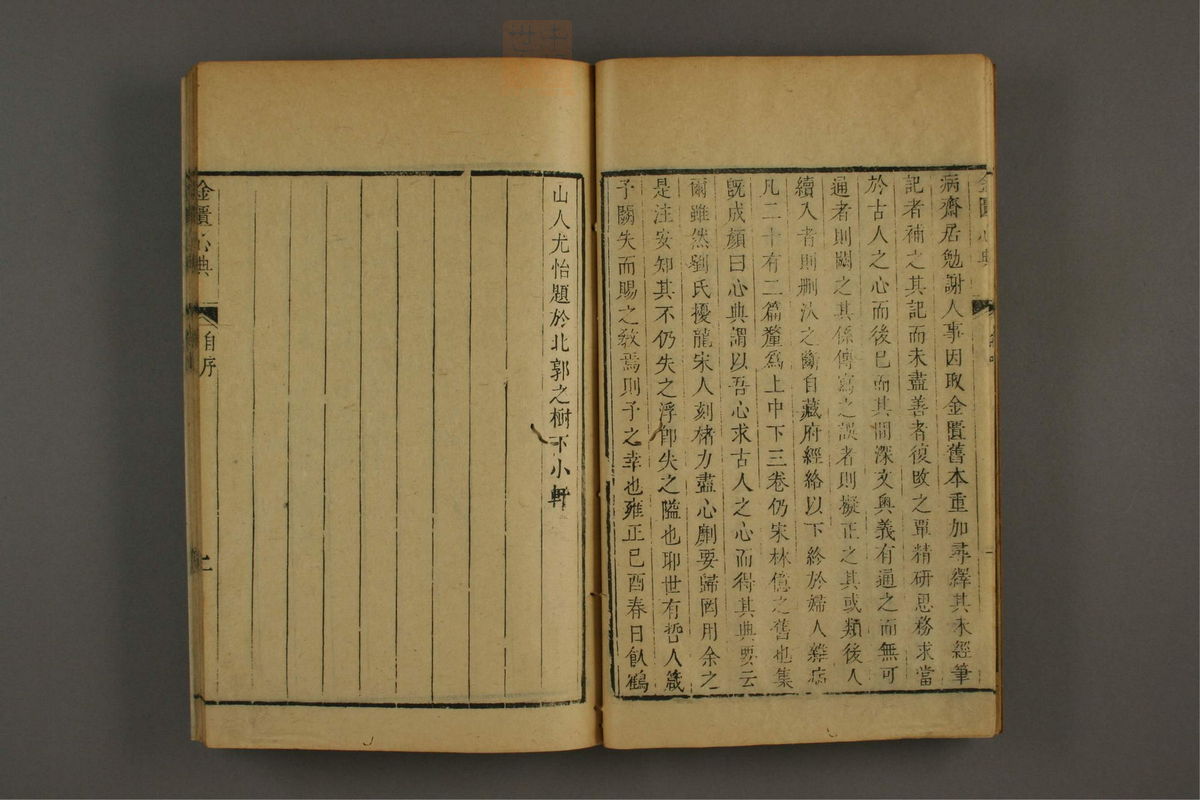 病齋居勉謝人事因取金匱舊本重加尋繹其未經筆
記者補之其記而未盡善者復改之覃精研思務求當
於古人之心而後已而其間深文奥義有通之而無可
通者則闕之其係傳寫之誤者則擬正之其或類後人
續入者則刪汰之斷自藏府經絡以下終於婦人雜病
凡二十有二篇釐爲上中下三卷仍宋林億之舊也集
既成顏曰心典謂以吾心求古人之心而得其典要云
爾雖然劉氏擾龍宋人刻楮力盡心劘要歸罔用余之
是注安知其不仍失之浮卽失之隘也耶世有哲人箴
予闕失而賜之教焉則予之幸也雍正己酉春日飮鶴
山人尤怡題於北郭之樹下小軒
金匱心典
自序
二